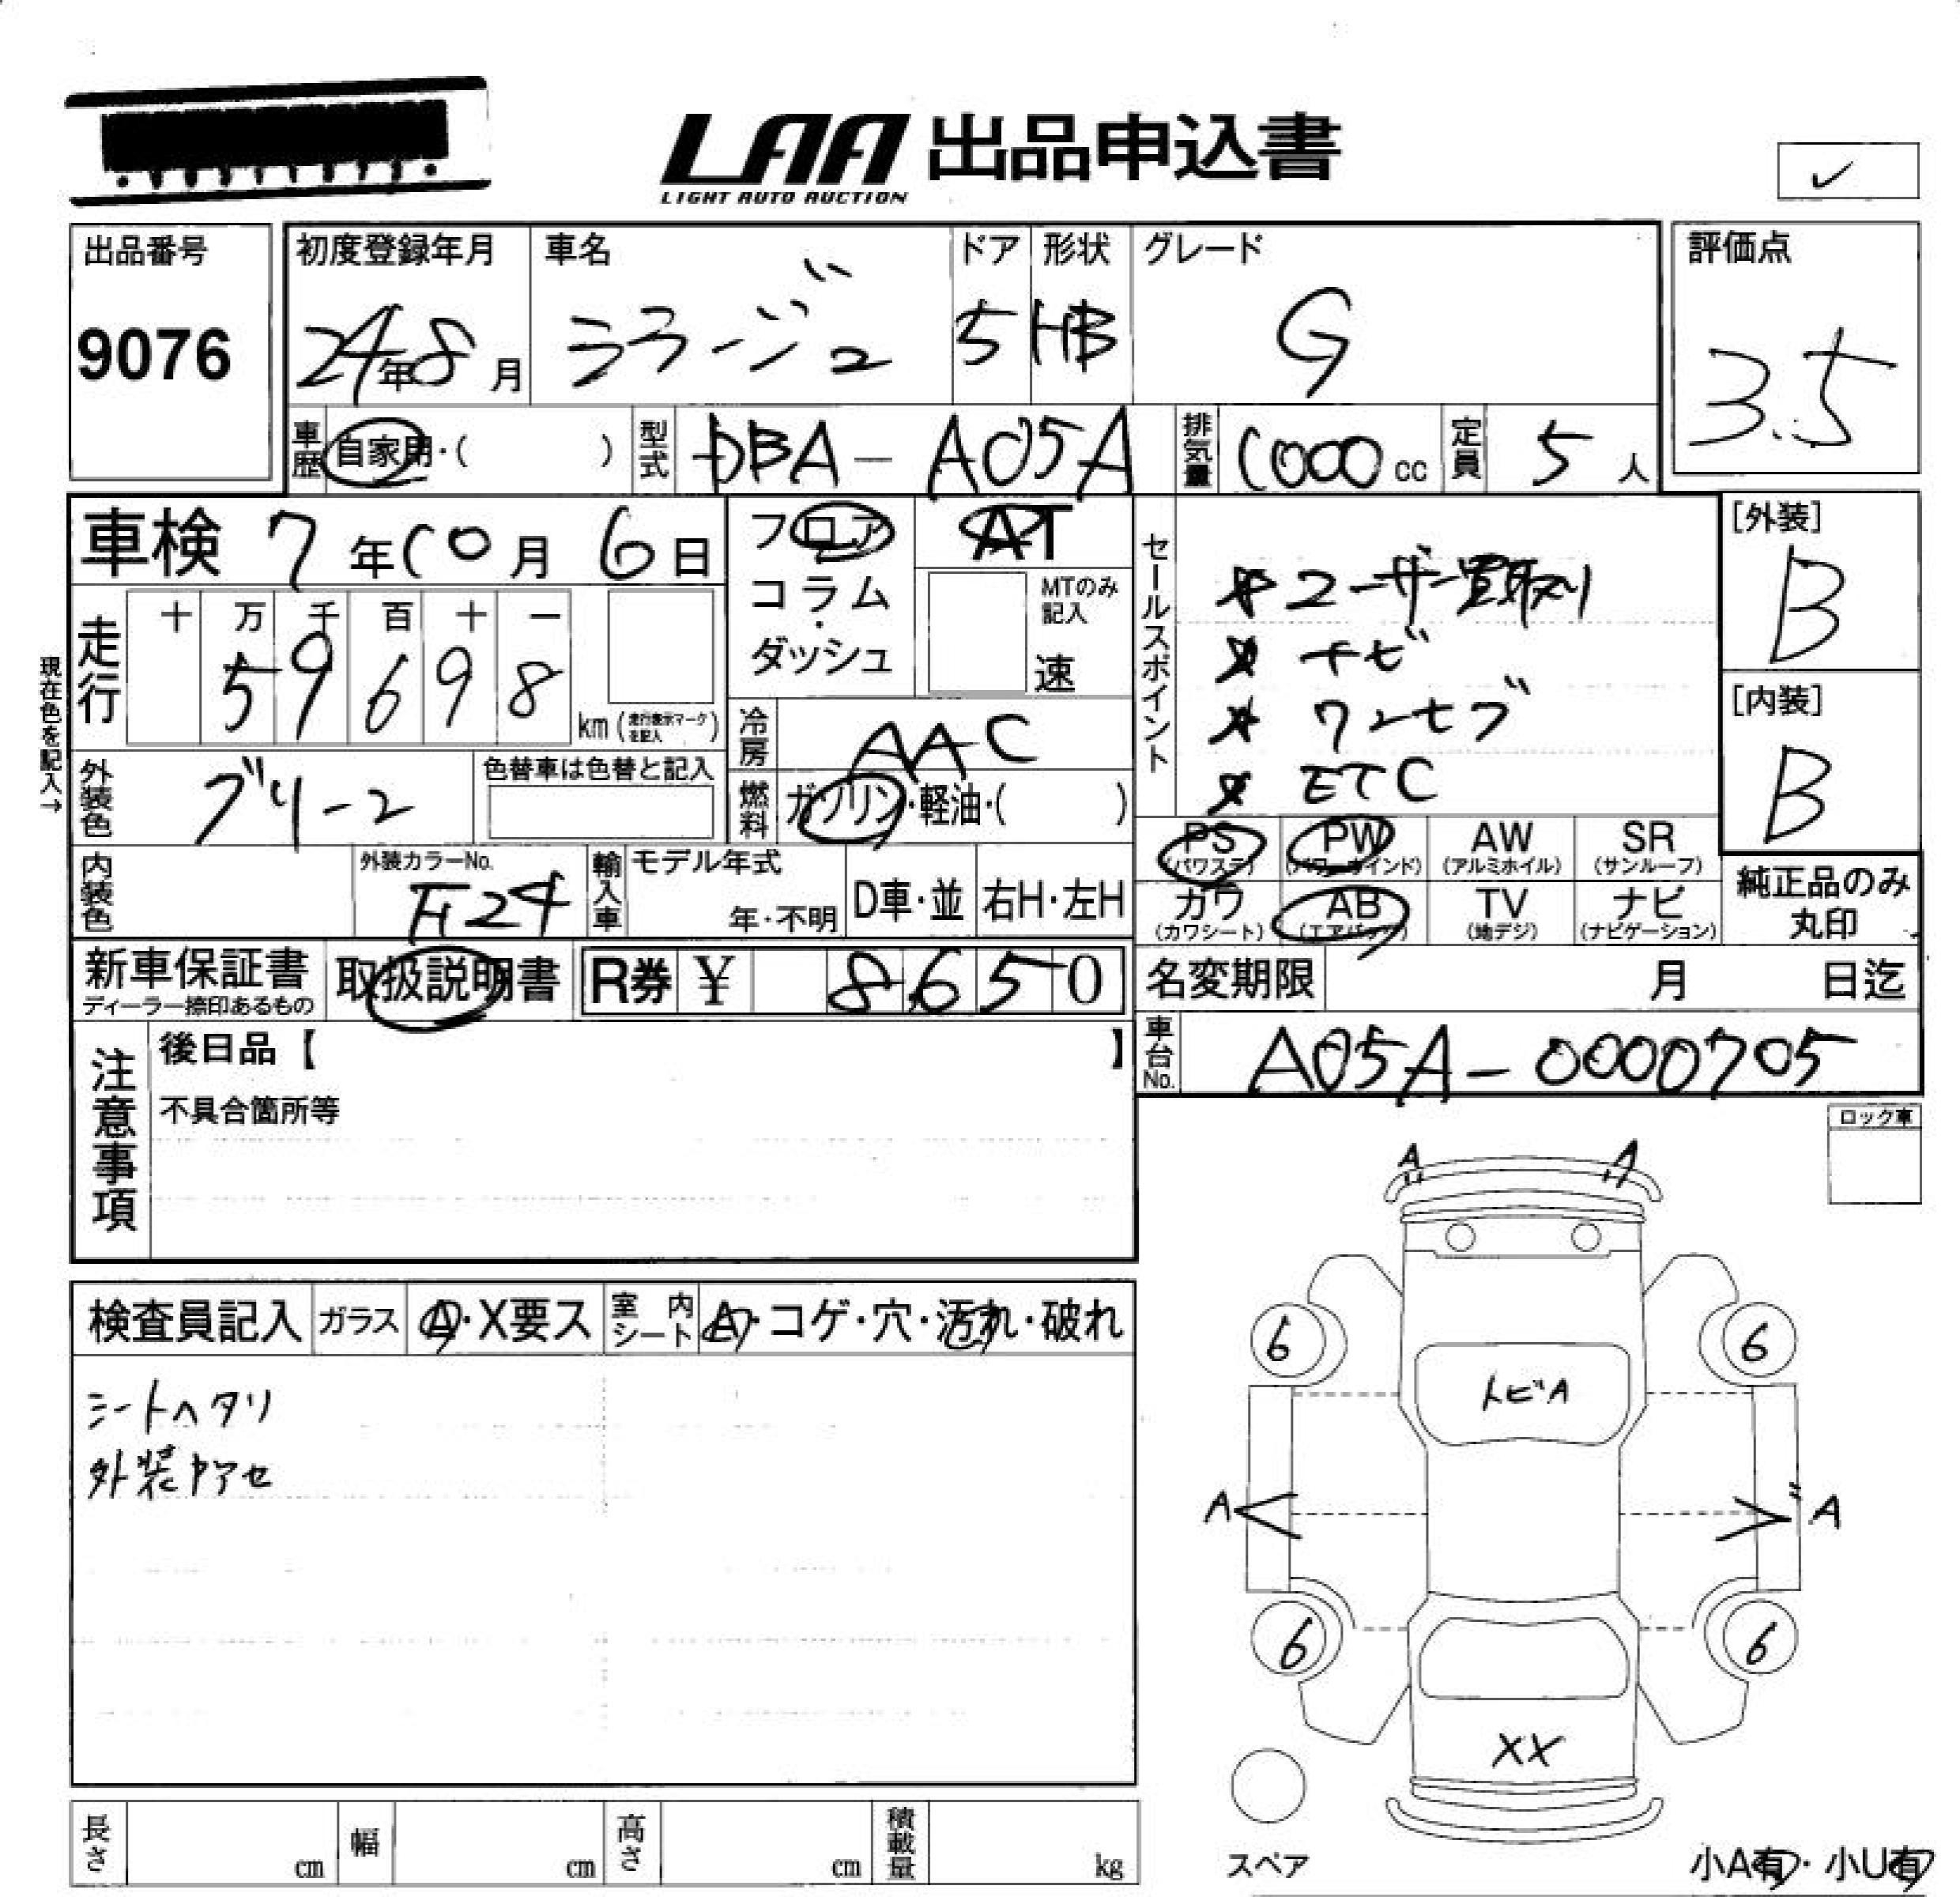 LAA 出品申込書
LIGHT AUTO AUCTION
✓
出品番号
9076
初度登録年月
24年8月
車名
ミラージュ
ドア
5
形状
HB
グレード
G
評価点
3.5
車歴
自家用・( )
型式
DBA-A05A
排気量
1000 cc
定員
5 人
車検 7年10月6日
フロア
コラム・
ダッシュ
AT
MTのみ
記入
速
走行
十 万 千 百 十 一
5 9 6 9 8
km (走行表示マークを記入)
現在色を記入→
冷房
AAC
燃料
ガソリン・軽油・( )
外装色
グリーン
色替車は色替と記入
内装色
外装カラーNo.
F24
輸入車
モデル年式
年・不明
D車・並
右H・左H
セールスポイント
ユーザー買取り
ナビ
ワンセグ
ETC
[外装]
B
[内装]
B
PS
(パワステ)
PW
(パワーウインド)
AW
(アルミホイル)
SR
(サンルーフ)
カワ
(カワシート)
AB
(エアバック)
TV
(地デジ)
ナビ
(ナビゲーション)
純正品のみ
丸印
新車保証書
ディーラー捺印あるもの
取扱説明書
R券 ¥ 8650
名変期限 月 日迄
車台No.
A05A-0000705
注意事項
後日品【 】
不具合箇所等
ロック車
検査員記入
ガラス
A・X要ス
室内
シート
A・コゲ・穴・汚れ・破れ
シートヘタリ
外装ヤケアセ
A
A
6
6
トビA
A
A
6
6
XX
スペア
小A有・小U有
長さ cm
幅 cm
高さ cm
積載量 kg